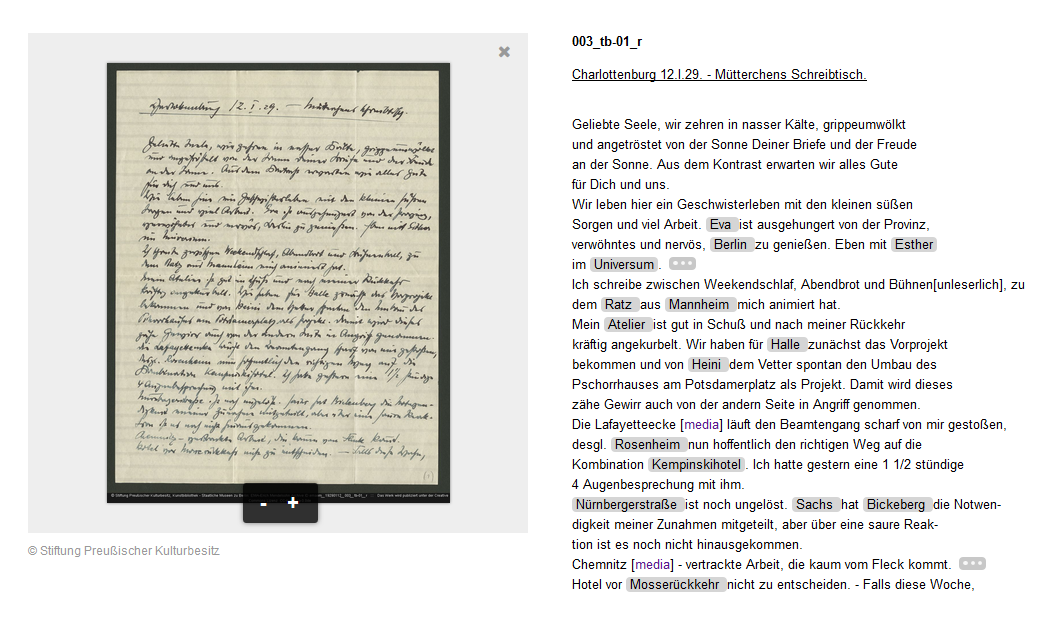 003_tb-01_r
Charlottenburg 12.I.29. - Mütterchens Schreibtisch.
Geliebte Seele, wir zehren in nasser Kälte, grippeumwölkt
und angetröstet von der Sonne Deiner Briefe und der Freude
an der Sonne. Aus dem Kontrast erwarten wir alles Gute
für Dich und uns.
Wir leben hier ein Geschwisterleben mit den kleinen süßen
Sorgen und viel Arbeit. Eva ist ausgehungert von der Provinz,
verwöhntes und nervös, Berlin zu genießen. Eben mit Esther
im Universum.
Ich schreibe zwischen Weekendschlaf, Abendbrot und Bühnen[unleserlich], zu
dem Ratz aus Mannheim mich animiert hat.
Mein Atelier ist gut in Schuß und nach meiner Rückkehr
kräftig angekurbelt. Wir haben für Halle zunächst das Vorprojekt
bekommen und von Heini dem Vetter spontan den Umbau des
Pschorrhauses am Potsdamerplatz als Projekt. Damit wird dieses
zähe Gewirr auch von der andern Seite in Angriff genommen.
Die Lafayetteecke [media] läuft den Beamtengang scharf von mir gestoßen,
desgl. Rosenheim nun hoffentlich den richtigen Weg auf die
Kombination Kempinskihotel. Ich hatte gestern eine 1 1/2 stündige
4 Augenbesprechung mit ihm.
Nürnbergerstraße ist noch ungelöst. Sachs hat Bickeberg die Notwen-
digkeit meiner Zunahmen mitgeteilt, aber über eine saure Reak-
tion ist es noch nicht hinausgekommen.
Chemnitz [media] - vertrackte Arbeit, die kaum vom Fleck kommt.
Hotel vor Mosserückkehr nicht zu entscheiden. - Falls diese Woche,
© Stiftung Preußischer Kulturbesitz